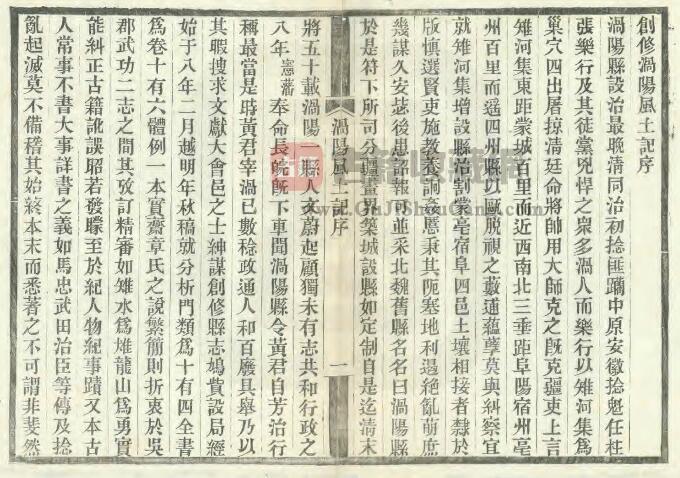 創修渦陽風土記序
渦陽縣設治最晚清同治初捻匪躪中原安徽捻魁任柱
張樂行及其徒黨兇悍之衆多渦人而樂行以雉河集爲
巢穴四出屠掠清廷命將帥用大師克之旣克疆吏上言
雉河集東距蒙城百里而近西南北三垂距阜陽宿州亳
州百里而遙四州縣以甌脫視之藪逋蘊孽莫與糾察宜
就雉河集增設縣治割蒙亳宿阜四邑土壤相接者隸於
版愼選賢吏施敎養詗姦慝秉其阨塞地利遏絕亂萌庶
幾謀久安毖後患詔報可並采北魏舊縣名名曰渦陽縣
於是符下所司分疆畫界築城設縣如定制自是迄清末
渦陽風土記序
一
將五十載渦陽一縣人文蔚起顧獨未有志共和行政之
八年憲藩奉命長皖旣下車聞渦陽縣令黃君自芳治行
種最當是時黃君宰渦已數稔政通人和百廢具舉乃以
其暇搜求文獻大會邑之士紳謀創修縣志鳩費設局經
始于八年二月越明年秋稿就分析門類爲十有四全書
爲卷十有六體例一本實齋章氏之說繁簡則折衷於吳
郡武功二志之間其攷訂精審如雉水爲雄龍山爲勇實
能糾正古籍訛誤昭若發矇至於紀人物紀事蹟又本古
人常事不書大事詳書之義如馬忠武田治臣等傳及捻
亂起滅莫不備稽其始終本末而悉著之不可謂非斐然